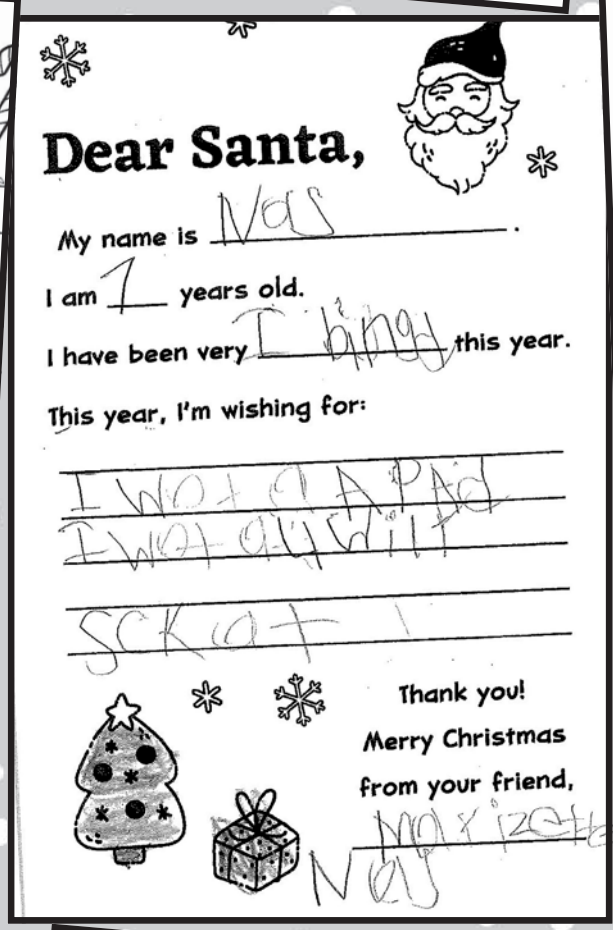 Dear Santa,
My name is Nas.
I am 7 years old.
I have been very I bing this year.
This year, I'm wishing for:
I wat a APAd
I wat a
scKat
Thank you!
Merry Christmas
from your friend,